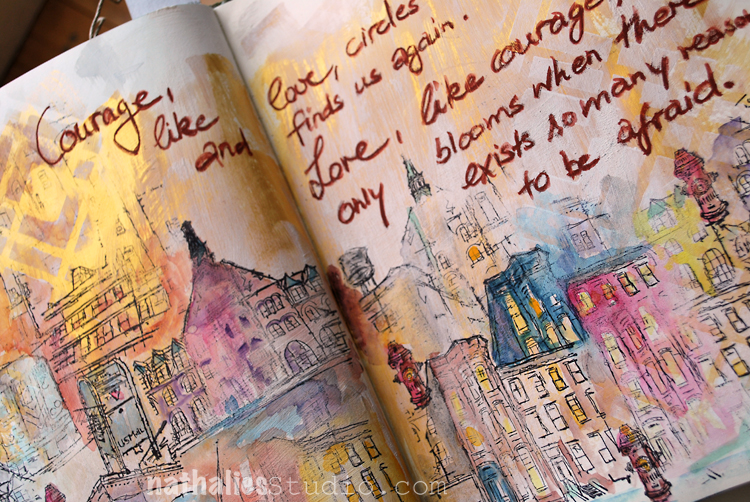 Courage,
like
and
love, circles
finds us again.
Love, like courage,
only blooms when there
exists so many reasons
to be afraid.
nathaliesstudio.com